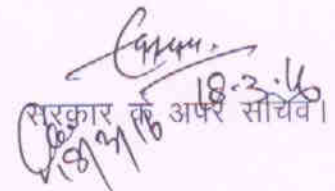 18.3.16
सरकार के अपर सचिव।
18/3/16